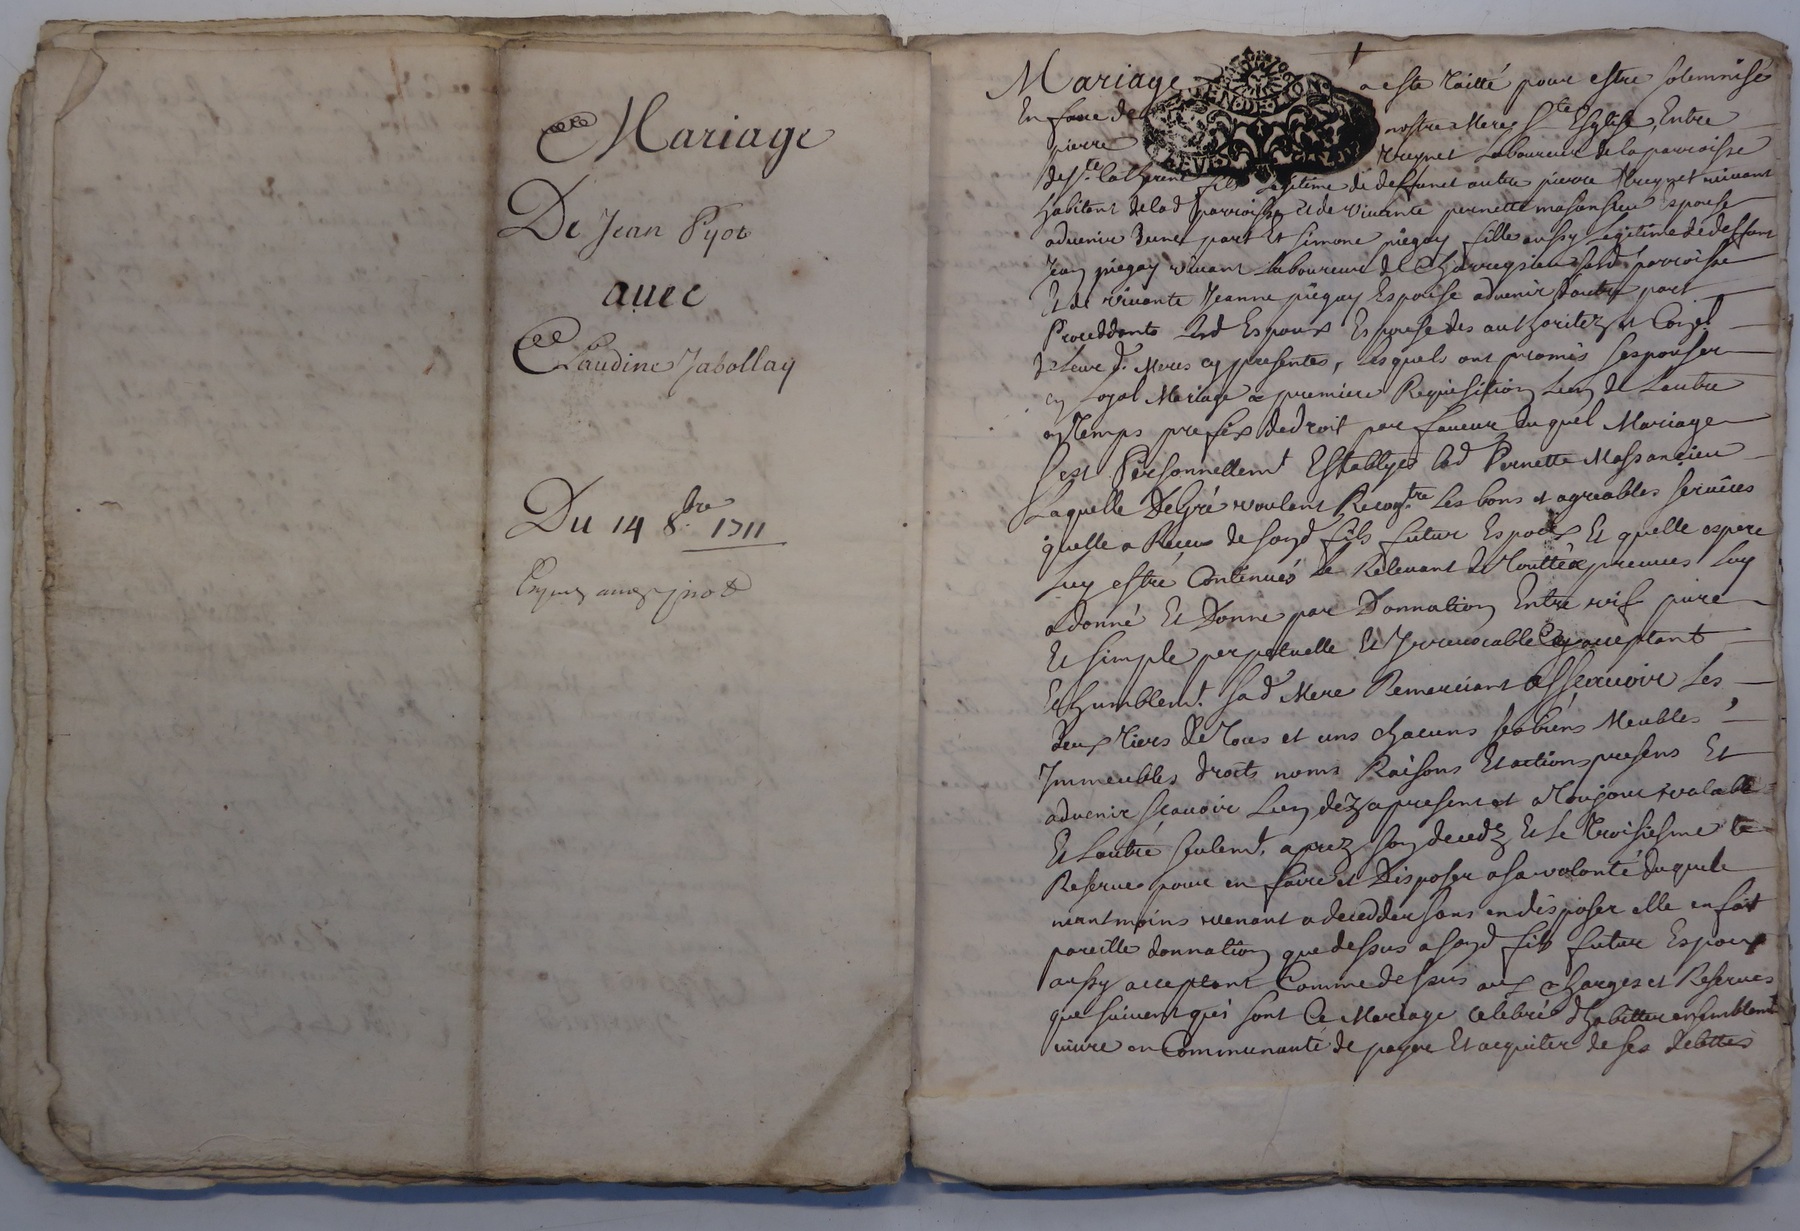 Mariage
De Jean Pyot
avec
Claudine Jabollay
Du 14 8.bre 1711
Mariage a esté traitté pour estre solemnisé
En face de nostre Mere Ste Esglise, Entre
pierre Laboureur de la parroisse
de Ste Catherine fils Legitime de deffunct autre pierre vivant
habitant de lad parroisse et de vivante pernette masansieu espoux
advenir d'une part Et Simone piegay fille aussy Legitime de deffunt
Jean piegay vivant Laboureur de parroisse
Et de vivante Jeanne piegay Espouse advenir d'autre part
Proceddants Lesd Espoux Espouse des authoritez et Conseil
de Leurs d. Meres cy presentes, Lesquels ont promis s'espouser
en Loyal Mariage a premiere Requisition Lun de Lautre
en temps prefix de droit par faveur duquel Mariage
s'est Personnellemt Establye lad Pernette Massansieu
Laquelle De Gré voulant Recogtre Les bons et agreables services
quelle a Receu de sond fils futur Espoux Et quelle espere
Luy estre Continués Le Relevant de Toutte preuves Luy
a donné Et Donne par Donnation Entre vif pure
Et simple perpetuelle Et Irrevocable acceptant
Et humblemt. sad Mere Remerciant assçavoir Les
deux tiers de Tous et uns chacuns ses biens Meubles
Immeubles droits noms Raisons Et actions presens Et
advenir sçavoir Lun dez a present et a Toujours valable
Et Lautre seulemt. aprez son decedz Et Le Troisiesme
Reserve pour en faire et Disposer a sa volonté duquel
neantmoins venant a decedder sans en disposer elle en fait
pareille donnation que dessus a sond fils futur Espoux
aussy acceptant Comme dessus aux charges et Reserves
que suivent qui sont Ce Mariage celebré d'habitter ensemblemt
vivre en Communauté de payer Et acquiter de ses debttes